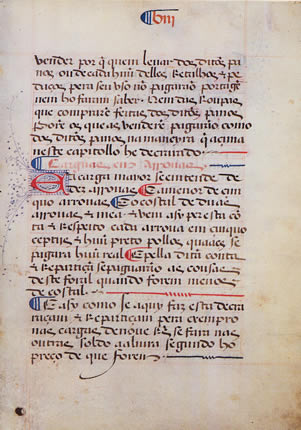 biij
vender por q̃ quem levar dos ditos pa
nos ou de cada huũ delles Retalhos & pe
daços pera seu uso nõ pagaram portagẽ
nem ho faram saber. Nem das Roupas
que comprarẽ feitas dos ditos panos
Porẽ os que as venderẽ pagaram como
dos ditos panos na maneyra q̃ acima
neste capitollo he decrarado
Carguas em Arrouas
A carga maior se entende de
dez arrouas. E a menor de cin
quo arrouas. E o costal de duas
arrouas & mea. E vem asy per esta cõ
ta & Respeito cada arroua em cinquo
ceptijs & huũ preto pollos quaaes se
pagara huũ real. E pella dita conta
& Repartiçã se pagaram as cousas
deste foral quando forem menos
de costal
E asy como se aquy faz esta decra
raçam & Repartiçam pera exempro
nas cargas de noue Rs se fara nas
outras soldo a libra segundo ho
preço de que forem